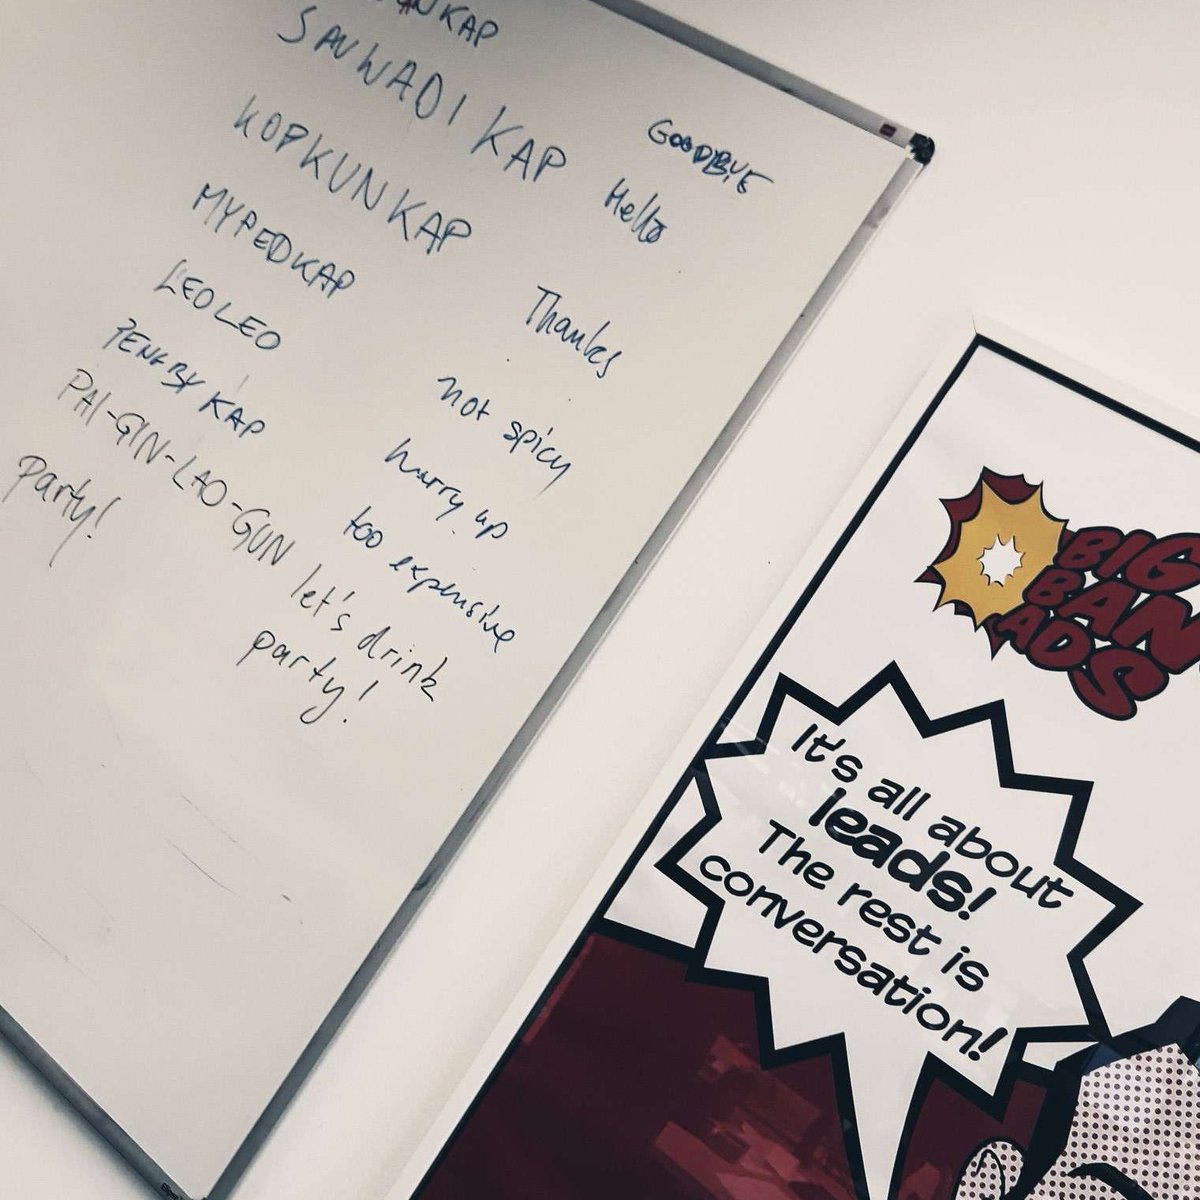 GOODBYE
SAUWADI KAP Hello
KOPKUNKAP Thanks
MYPEDKAP not spicy
LEOLEO hurry up
PENGBY KAP too expensive
PAI-GIN-LAO-GUN let's drink
party! party!
BIG
BAN
ADS
It's all about
leads!
The rest is
conversation!